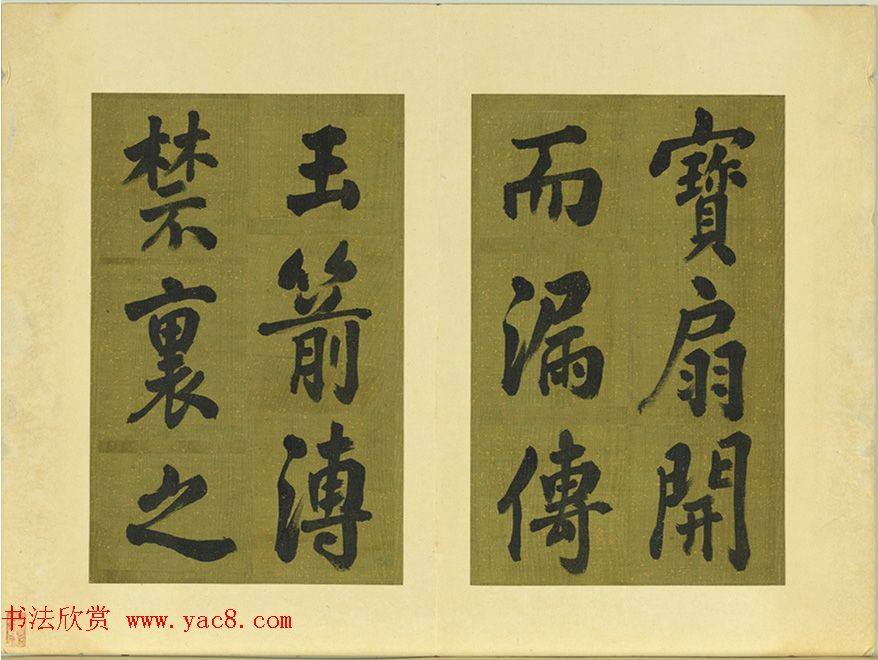 寶扇開
而漏傳
玉箭漙
禁裏之
书法欣赏 www.yac8.com